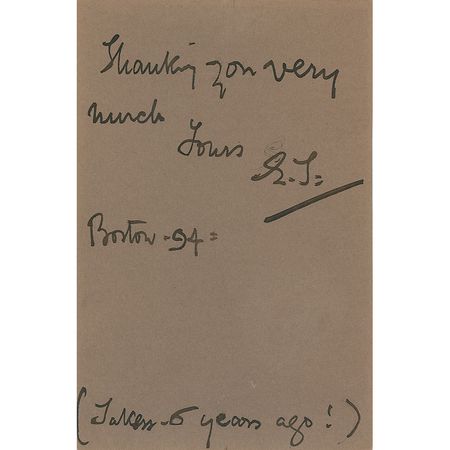 Thanking you very
much
Yours
E.T=
Boston - 94 =
(Taken - 6 years ago!)